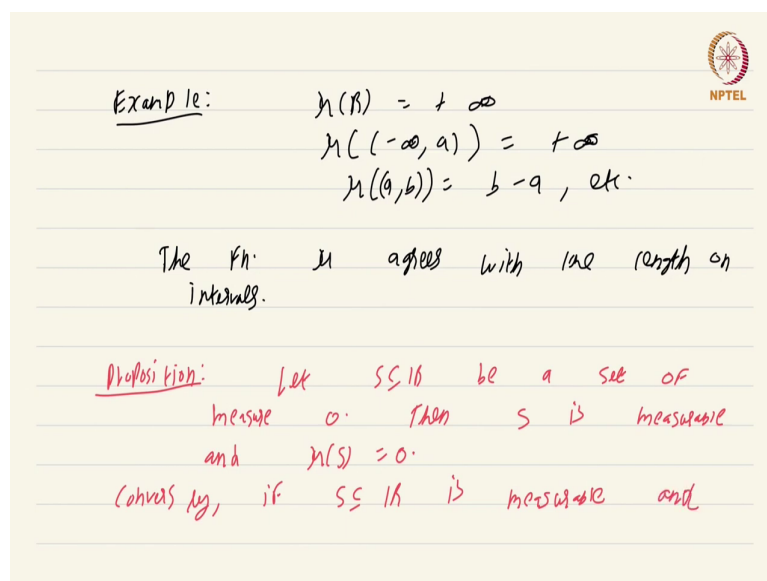 NPTEL
Example: μ(ℝ) = +∞
μ((-∞, a)) = +∞
μ((a,b)) = b-a, etc.
The Fn. μ agrees with the length on
intervals.
Proposition: Let S ⊆ ℝ be a set of
measure 0. Then S is measurable
and μ(S) = 0.
Conversly, if S ⊆ ℝ is measurable and